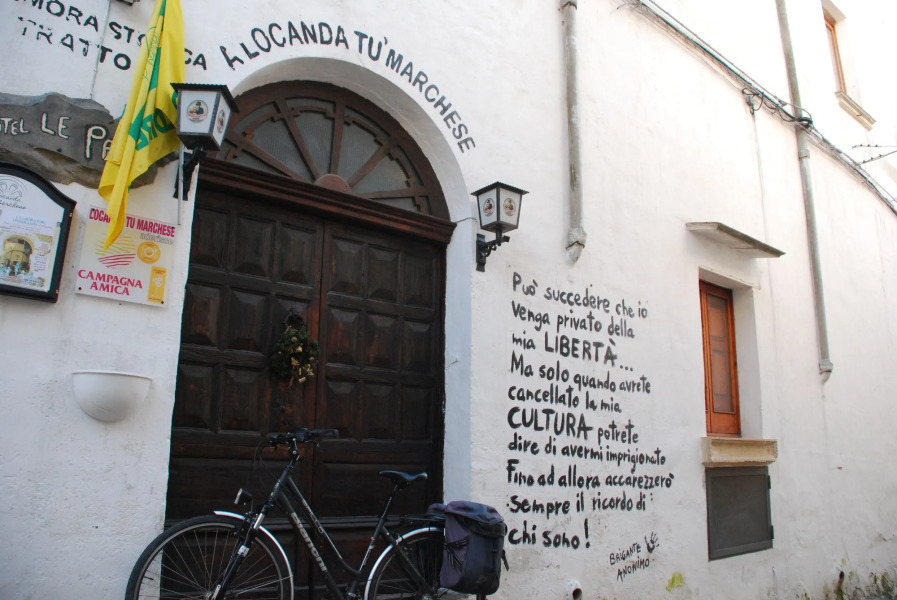 MORA STORICA
TRATTO
A LOCANDA TU' MARCHESE
HOTEL LE
LOCANDA TU MARCHESE
CAMPAGNA
AMICA
Può succedere che io
venga privato della
mia LIBERTÀ...
Ma solo quando avrete
cancellato la mia
CULTURA potrete
dire di avermi imprigionato
Fino ad allora accarezzerò
sempre il ricordo di
chi sono!
BRIGANTE
ANONIMO